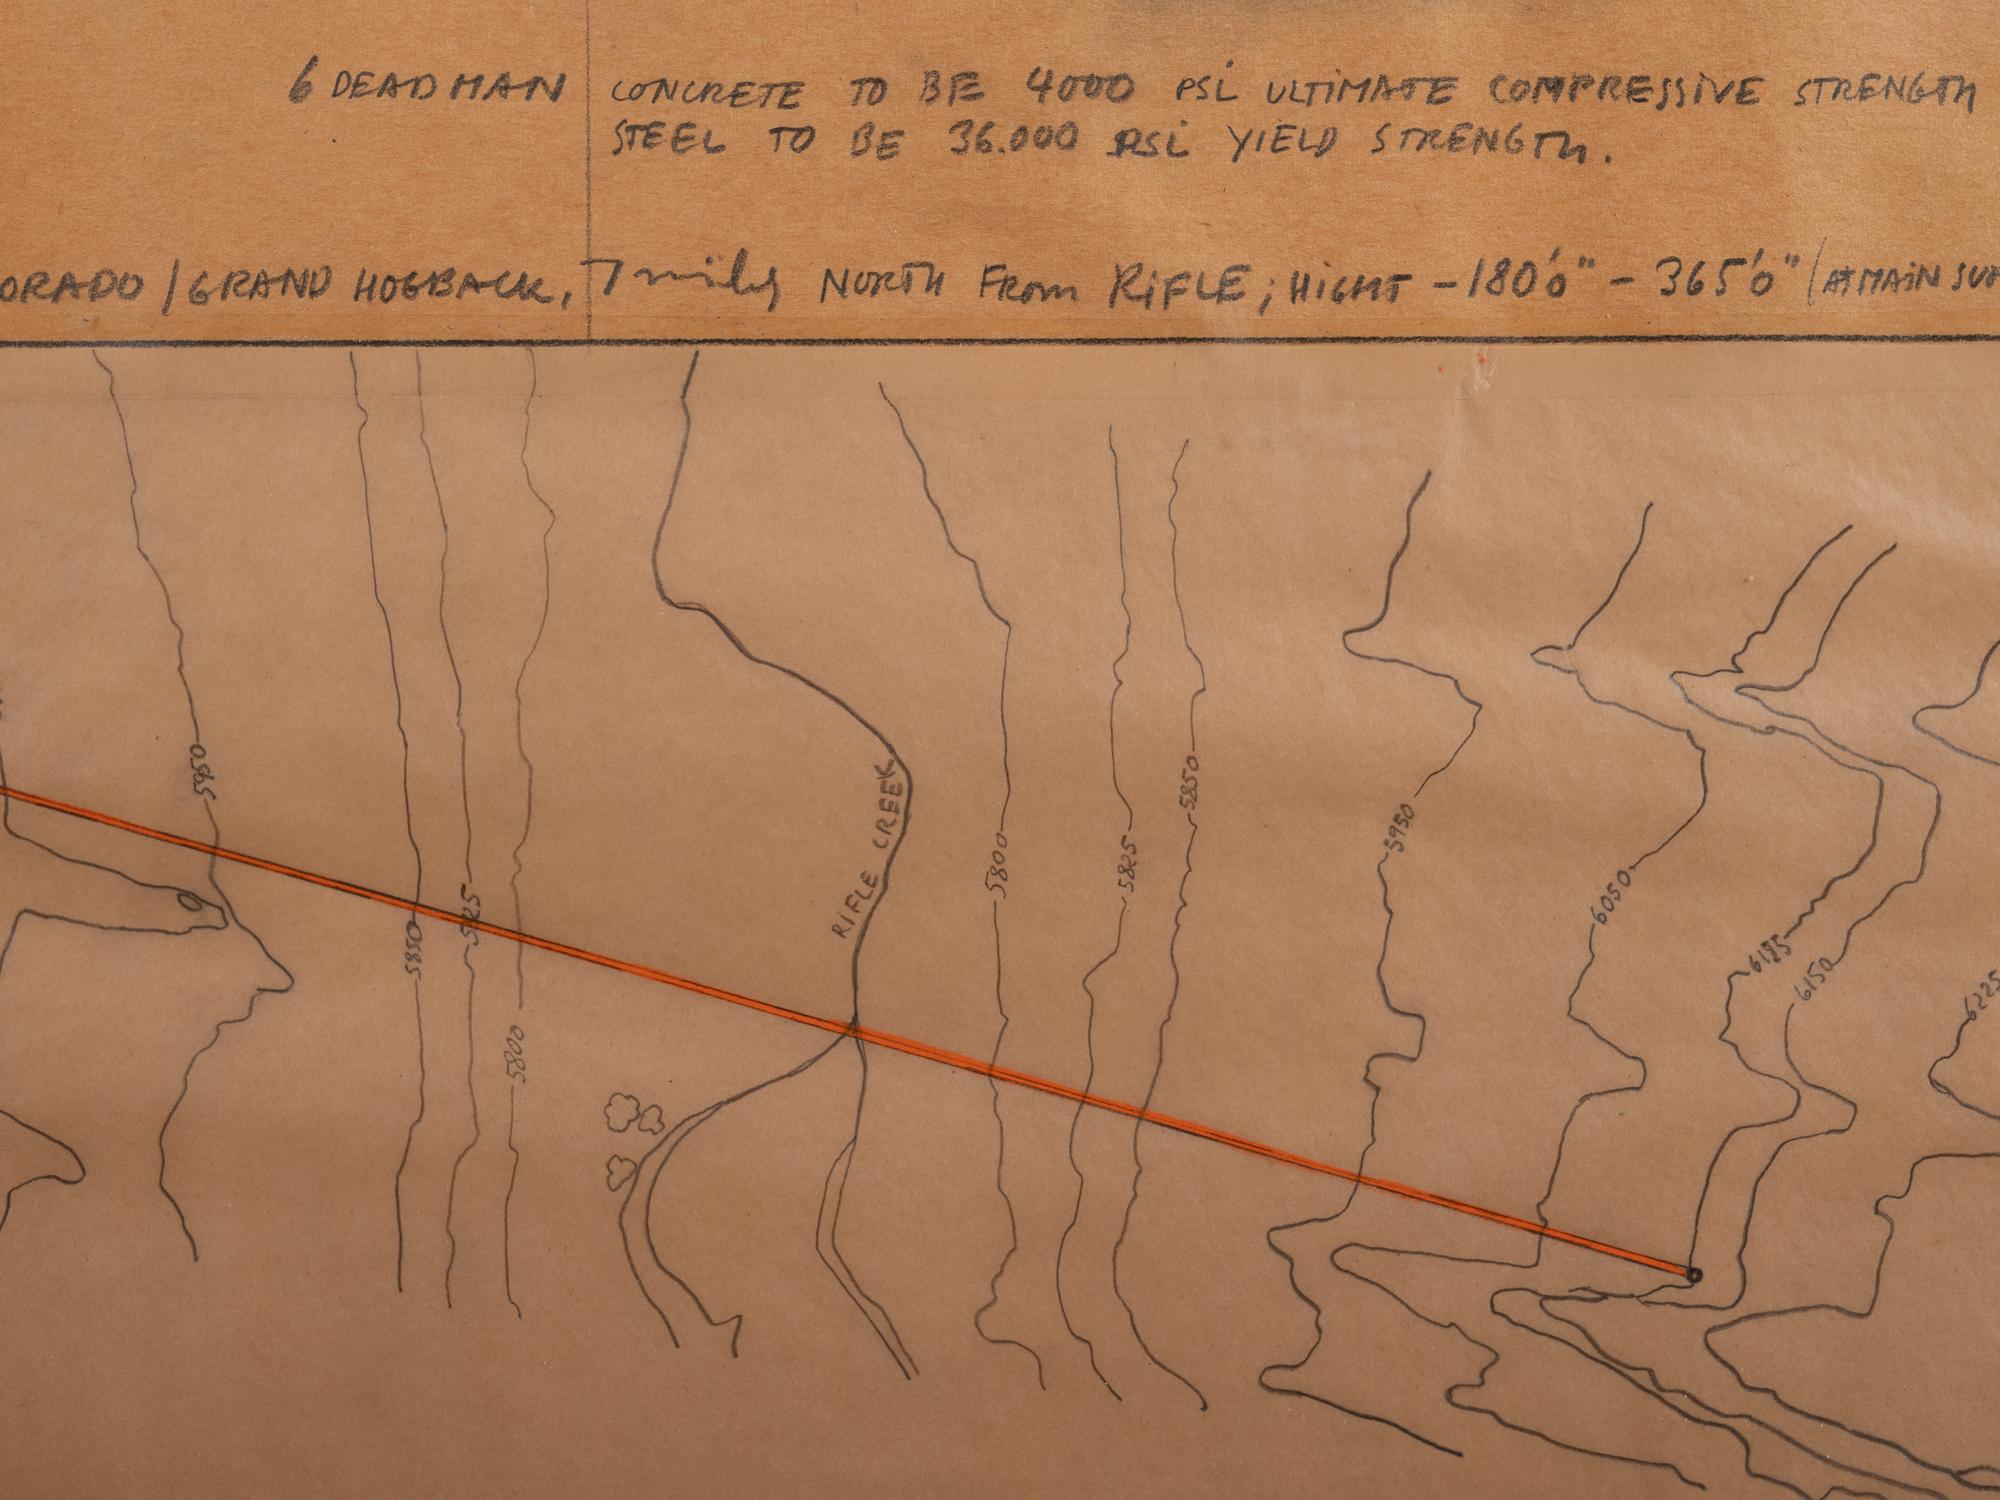 6 DEADMAN
CONCRETE TO BE 4000 PSI ULTIMATE COMPRESSIVE STRENGTH
STEEL TO BE 36.000 PSI YIELD STRENGTH.
ORADO / GRAND HOGBACK, 7 miles NORTH FROM RIFLE; HIGHT - 180'0" - 365'0" (AT MAIN SUP
5950
5850
5825
5800
RIFLE CREEK
5800
5825
5850
5950
6050
6125
6150
6225